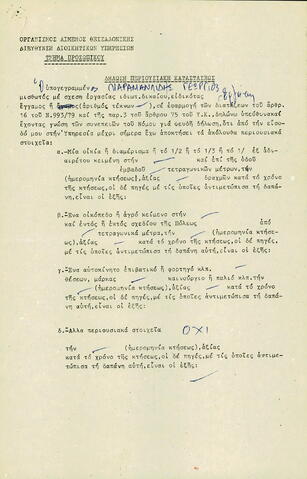 ΟΡΓΑΝΙΣΜΟΣ ΛΙΜΕΝΟΣ ΘΕΣΣΑΛΟΝΙΚΗΣ
ΔΙΕΥΘΥΝΣΙΣ ΔΙΟΙΚΗΤΙΚΩΝ ΥΠΗΡΕΣΙΩΝ
ΤΜΗΜΑ ΠΡΟΣΩΠΙΚΟΥ
ΔΗΛΩΣΗ ΠΕΡΙΟΥΣΙΑΚΗ ΚΑΤΑΣΤΑΣΕΩΣ
Ὁ ὑπογεγραμμένος ΓΕΩΡΓΙΟΣ
μισθωτός μέ σχέση ἐργασίας ἰδιωτ.δικαίου,εἰδικότης
ἔγγαμος ἤ (ἀριθμός τέκνων ),σέ ἐφαρμογή τῶν διατάξεων τοῦ ἄρθρ.
16 τοῦ Ν.993/79 καί τῆς παρ.3 τοῦ ἄρθρου 75 τοῦ Υ.Κ.,δηλώνω ὑπεύθυνα
ἔχοντας γνώση τῶν συνεπειῶν τοῦ Νόμου γιά ψευδῆ δήλωση,ὅτι ἀπό τήν εἴσο-
δό μου στήν Ὑπηρεσία μέχρι σήμερα ἔχω ἀποκτήσει τά ἀκόλουθα περιουσιακά
στοιχεῖα:
α.-Μία οἰκία ἤ διαμέρισμα ἤ τό 1/2 ἤ τό 1/3 ἤ τό 1/ ἐξ ἀδι-
αιρέτου κειμένη στήν καί ἐπί τῆς ὁδοῦ
ἐμβαδοῦ τετραγωνικῶν μέτρων,τήν
(ἡμερομηνία κτήσεως),ἀξίας δραχμῶν κατά τό χρόνο
τῆς κτήσεως,οἱ δέ πηγές,μέ τίς ὁποῖες ἀντιμετώπισα τή δαπά-
νη,εἶναι οἱ ἑξῆς:
β.-Ἕνα οἰκόπεδο ἤ ἀγρό κείμενο στήν
καί ἐντός ἤ ἐκτός σχεδίου τῆς Πόλεως ἀπό
τετραγωνικά μέτρα,τήν (ἡμερομηνία κτήσε-
ως),ἀξίας κατά τό χρόνο τῆς κτήσεως,οἱ δέ πηγές,
μέ τίς ὁποῖες ἀντιμετώπισα τή δαπάνη αὐτή,εἶναι οἱ ἑξῆς:
γ.-Ἕνα αὐτοκίνητο ἐπιβατικό ἤ φορτηγό κλπ.
θέσεων, μάρκας καινούργιο ἤ παλιό κλπ.τήν
(ἡμερομηνία κτήσεως),ἀξίας κατά τό χρόνο
τῆς κτήσεως,οἱ δέ πηγές,μέ τίς ὁποῖες ἀντιμετώπισα τή δαπά-
νη αὐτή,εἶναι οἱ ἑξῆς:
δ.-Ἄλλα περιουσιακά στοιχεῖα ΟΧΙ
τήν (ἡμερομηνία κτήσεως),ἀξίας
κατά τό χρόνο τῆς κτήσεως,οἱ δέ πηγές,μέ τίς ὁποῖες ἀντιμε-
τώπισα τή δαπάνη αὐτή,εἶναι οἱ ἑξῆς: